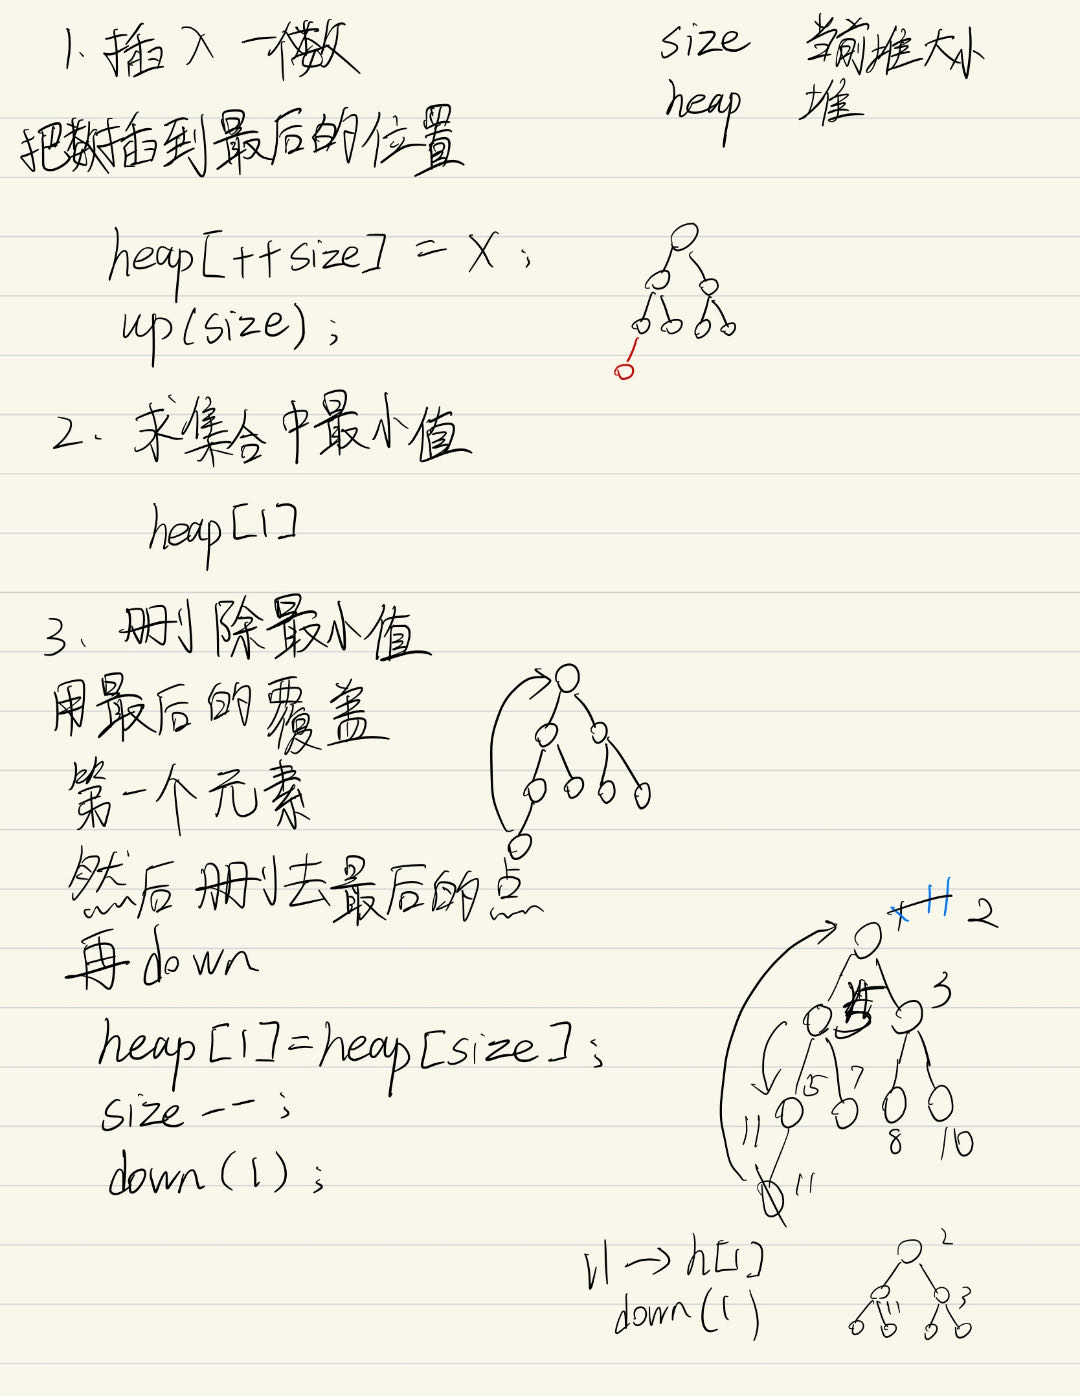 1. 插入一个数
size 当前堆大小
heap 堆
把数插到最后的位置
heap[++size] = x;
up(size);
2. 求集合中最小值
heap[1]
3. 删除最小值
用最后的覆盖
第一个元素
然后删去最后的点
再down
heap[1]=heap[size];
size--;
down(1);
2
3
5
7
11
8
10
11
11→h[1]
down(1)
2
11
3